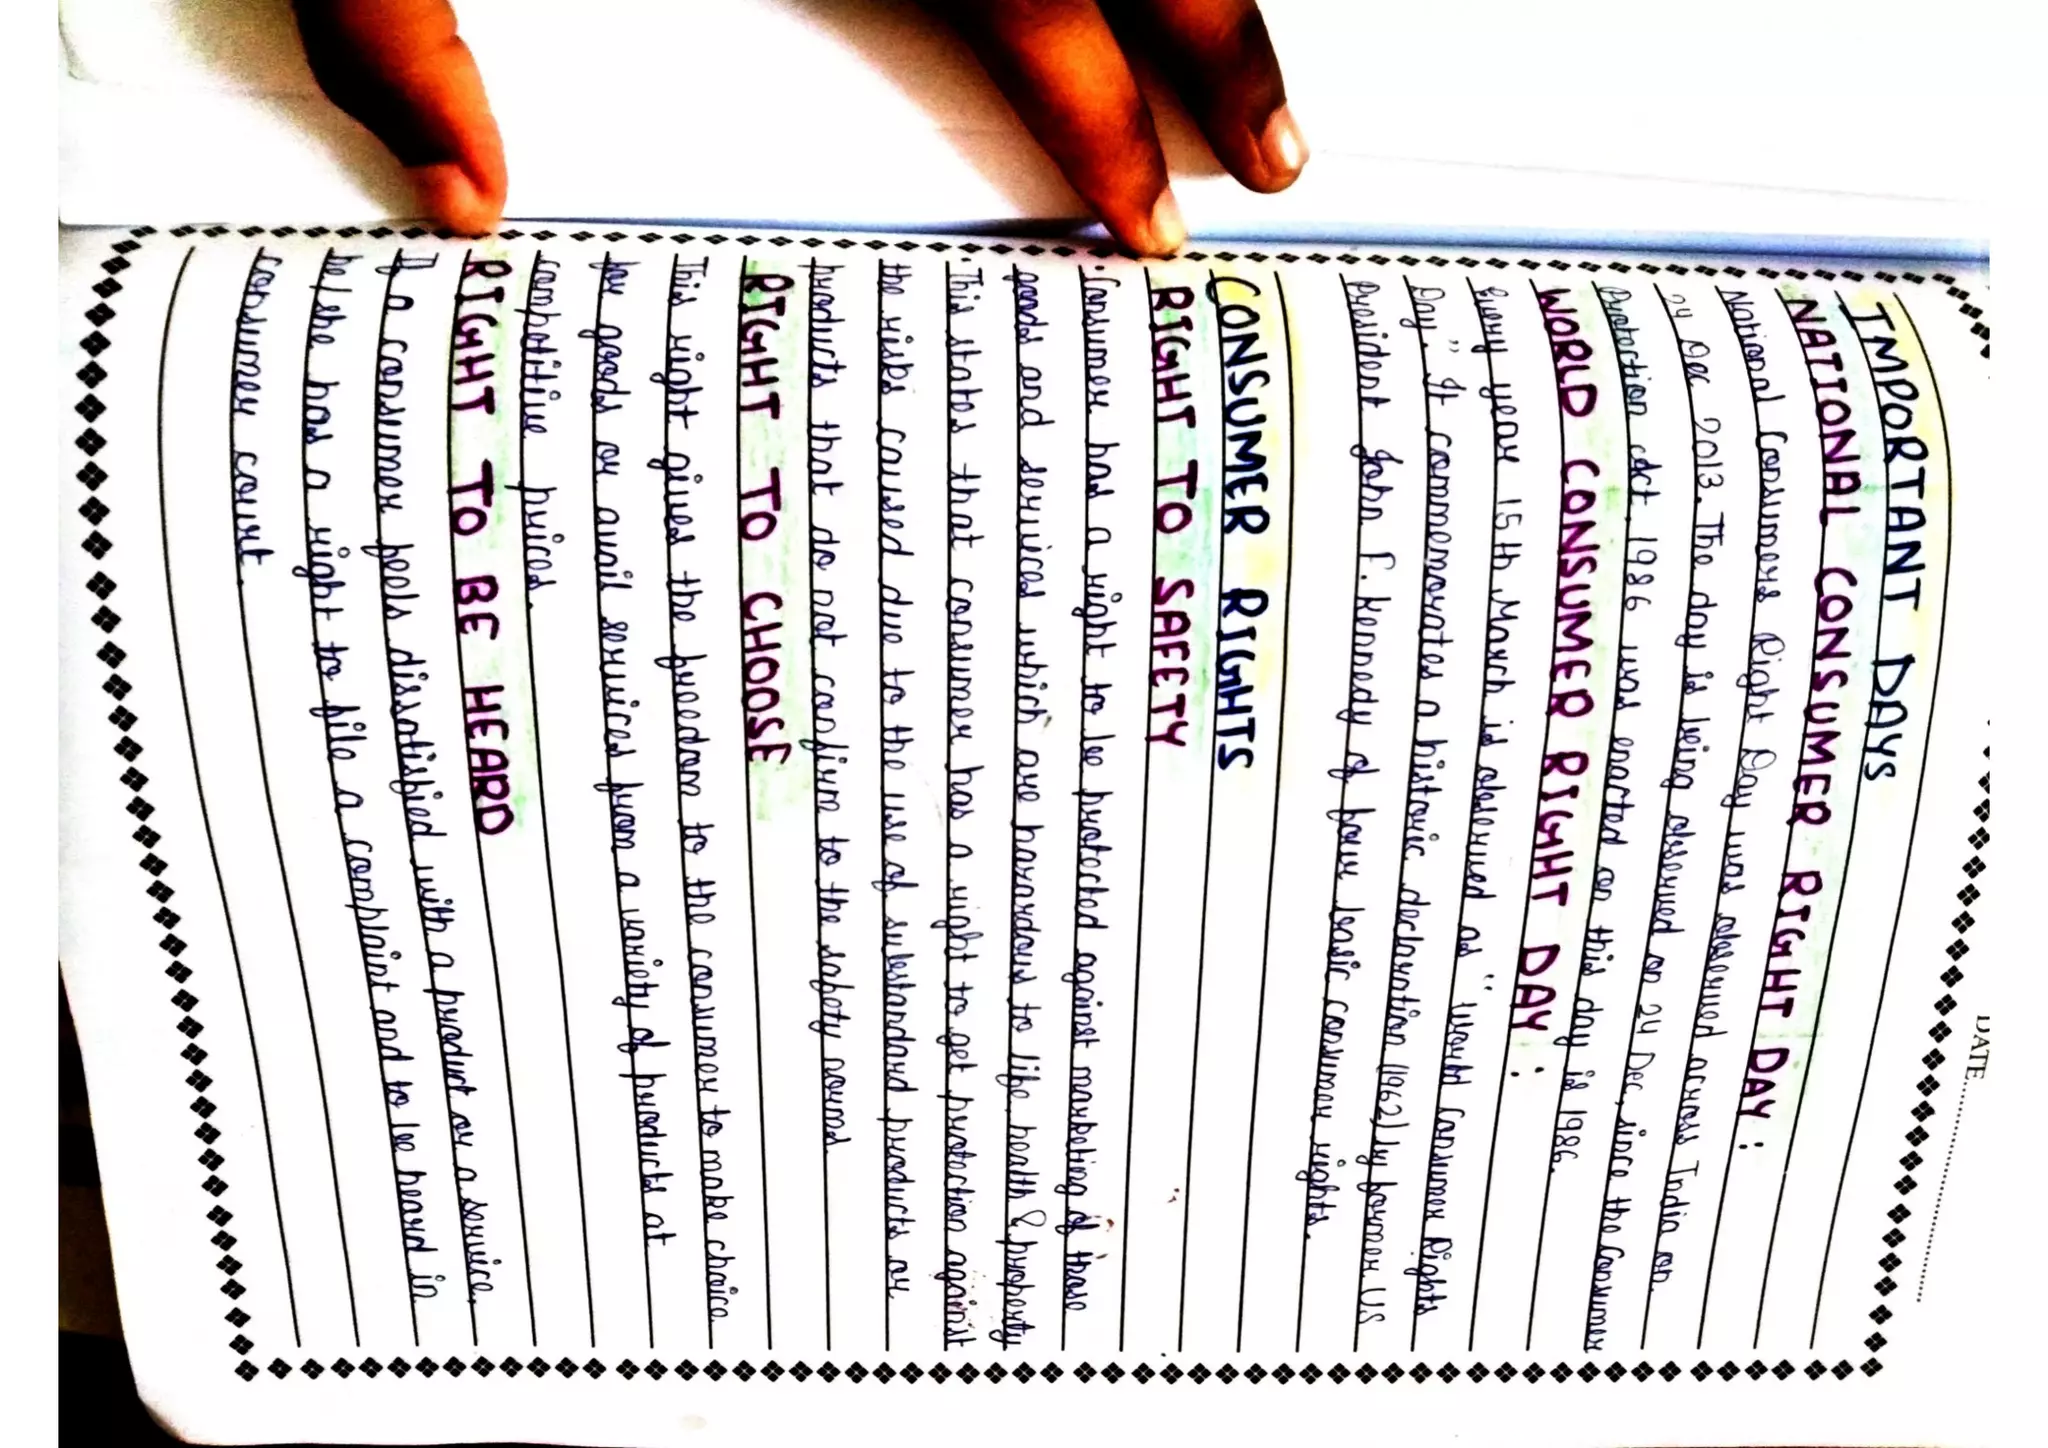 DATE
IMPORTANT DAYS
NATIONAL CONSUMER RIGHT DAY :
National Consumers Right Day was observed across India on
24 Dec 2013. The day is being observed on 24 Dec, since the Consumer
Protection Act, 1986 was enacted on this day is 1986.
WORLD CONSUMER RIGHT DAY :
Every year 15th March is observed as " World Consumer Rights
Day." It commemorates a historic declaration (1962) by former US
President John F. Kennedy of four basic consumer rights.
CONSUMER RIGHTS
RIGHT TO SAFETY
• Consumer has a right to be protected against marketing of those
goods and services which are hazardous to life, health & property
• This states that consumer has a right to get protection against
the risks caused due to the use of substandard products or
products that do not confirm to the safety norms
RIGHT TO CHOOSE
This right gives the freedom to the consumer to make choice
for goods or avail services from a variety of products at
competitive prices.
RIGHT TO BE HEARD
If a consumer feels dissatisfied with a product or a service,
he/she has a right to file a complaint and to be heard in
consumer court.